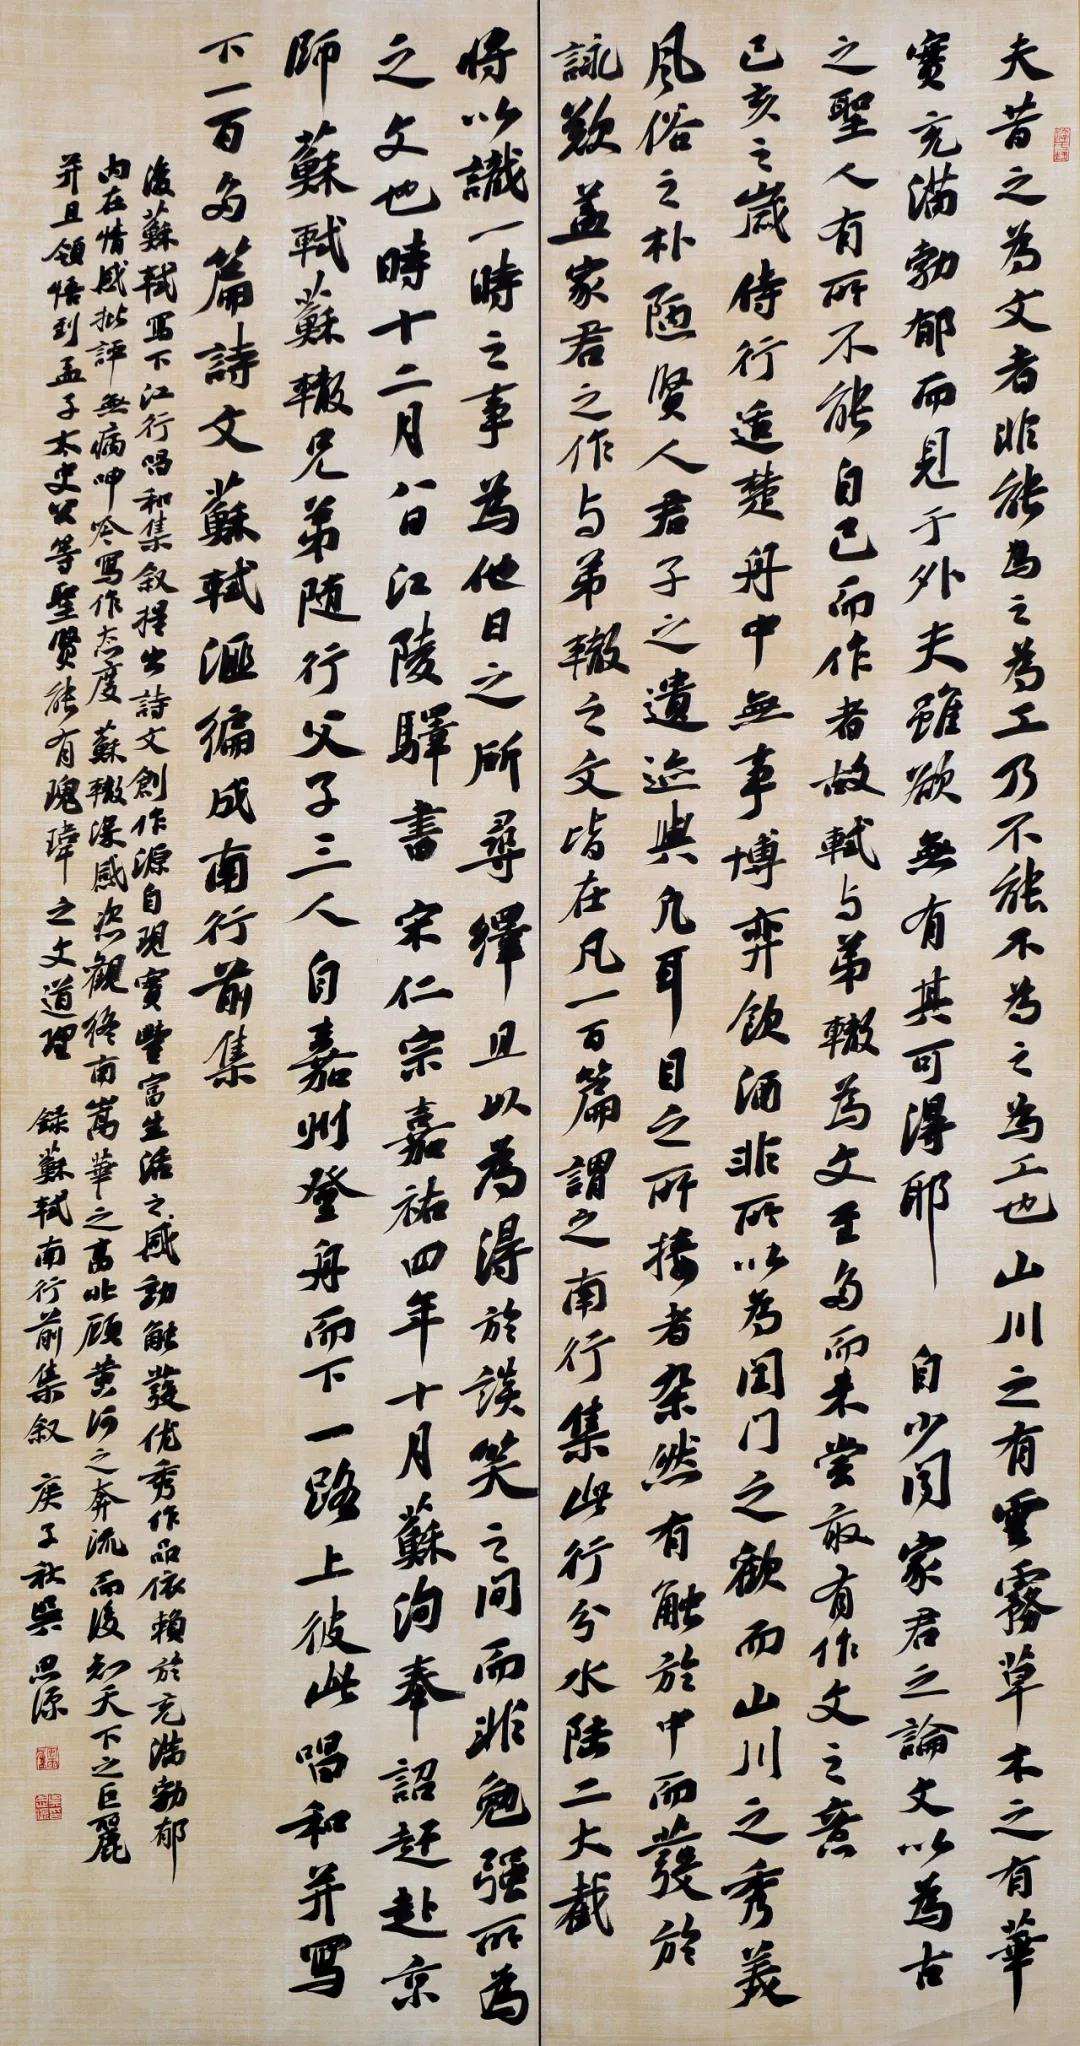 夫昔之為文者非能為之為工乃不能不為之為工也山川之有雲霧草木之有華
實充滿勃郁而見于外夫雖欲無有其可得耶 自少闻家君之論文以為古
之聖人有所不能自己而作者故軾与弟轍為文至多而未尝敢有作文之意
已亥之歲侍行适楚舟中無事博弈飲酒非所以為闺门之歡而山川之秀美
風俗之朴陋贤人君子之遺迹與凡耳目之所接者杂然有触於中而發於
詠歎盖家君之作与弟轍之文皆在凡一百篇謂之南行集此行分水陆二大截
将以識一時之事為他日之所尋繹且以為得於談笑之间而非勉强所為
之文也時十二月八日江陵驛書 宋仁宗嘉祐四年十月蘇洵奉詔赶赴京
師蘇軾蘇轍兄弟随行父子三人自嘉州登舟而下一路上彼此唱和并寫
下一百多篇詩文蘇軾匯編成南行前集
後蘇軾寫下江行唱和集叙提出詩文創作源自現實豐富生活之感動触發优秀作品依賴於充满勃郁
内在情感批評無病呻吟寫作态度蘇轍深感恣觀終南嵩華之高北顾黄河之奔流而後知天下之巨麗
并且領悟到孟子太史公等聖贤能有瑰瑋之文道理 録蘇軾南行前集叙 庚子秋吳思源